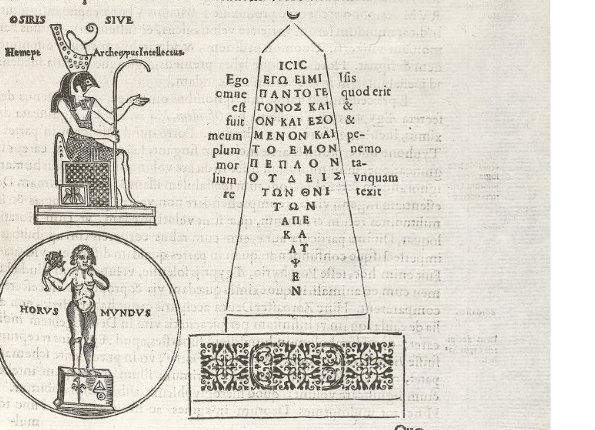 OSIRIS SIVE
Hemept Archetypus Intellectus.
HORUS MUNDUS
ΙCΙC
Ego ΕΓΩ ΕΙΜΙ Isis
omne ΠΑΝΤΟΓΕ quod erit
est ΓΟΝΟΣ ΚΑΙ &
fuit ΟΝ ΚΑΙ ΕΣΟ &
meum ΜΕΝΟΝ ΚΑΙ pe-
plum ΤΟ ΕΜΟΝ nemo
mor ΠΕΠΛΟΝ ta-
lium ΟΥΔΕΙΣ vnquam
re ΤΩΝ ΘΝΙ texit
ΤΩΝ
ΑΠΕ
ΚΑ
ΛΥ
Ψ
Ε
Ν